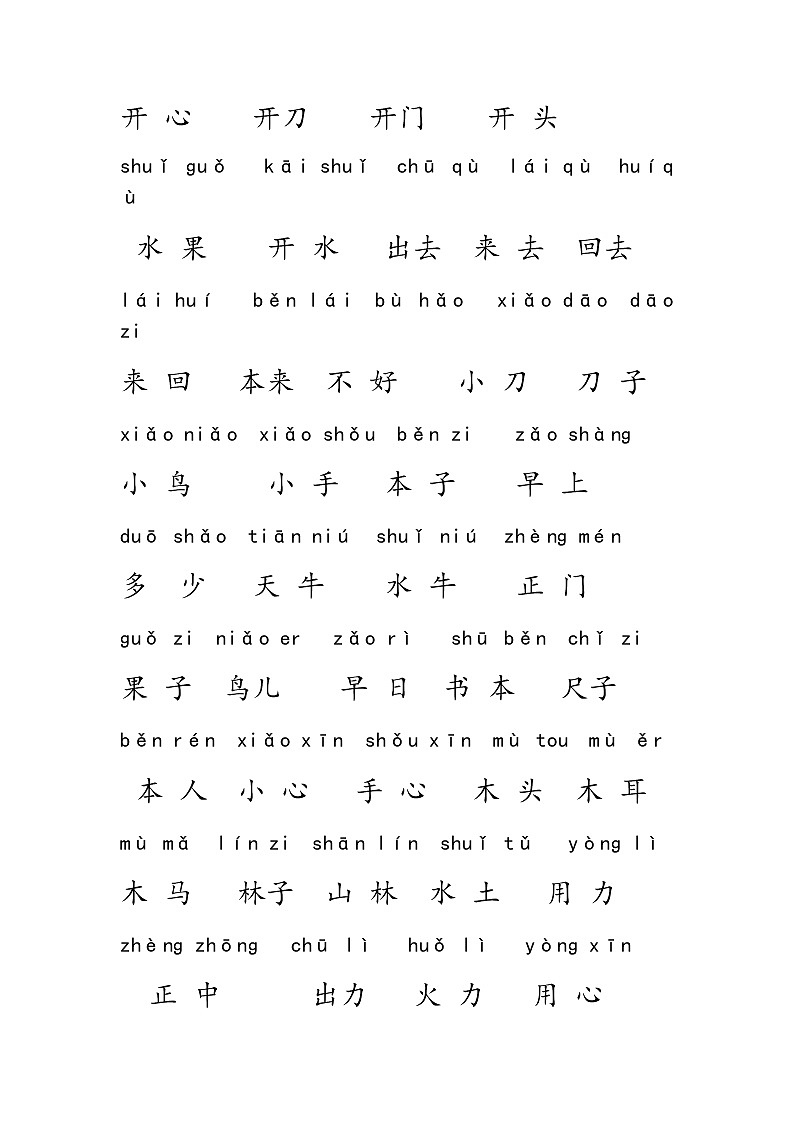 开 心 开刀 开门 开 头
shuǐ guǒ kāi shuǐ chū qù lái qù huí q
ù
水 果 开 水 出去 来 去 回去
lái huí běn lái bù hǎo xiǎo dāo dāo
zi
来 回 本来 不 好 小 刀 刀 子
xiǎo niǎo xiǎo shǒu běn zi zǎo shàng
小 鸟 小 手 本 子 早 上
duō shǎo tiān niú shuǐ niú zhèng mén
多 少 天 牛 水 牛 正 门
guǒ zi niǎo er zǎo rì shū běn chǐ zi
果 子 鸟儿 早 日 书 本 尺子
běn rén xiǎo xīn shǒu xīn mù tou mù ěr
本 人 小 心 手 心 木 头 木 耳
mù mǎ lín zi shān lín shuǐ tǔ yòng lì
木 马 林子 山 林 水 土 用 力
zhèng zhōng chū lì huǒ lì yòng xīn
正 中 出力 火 力 用 心